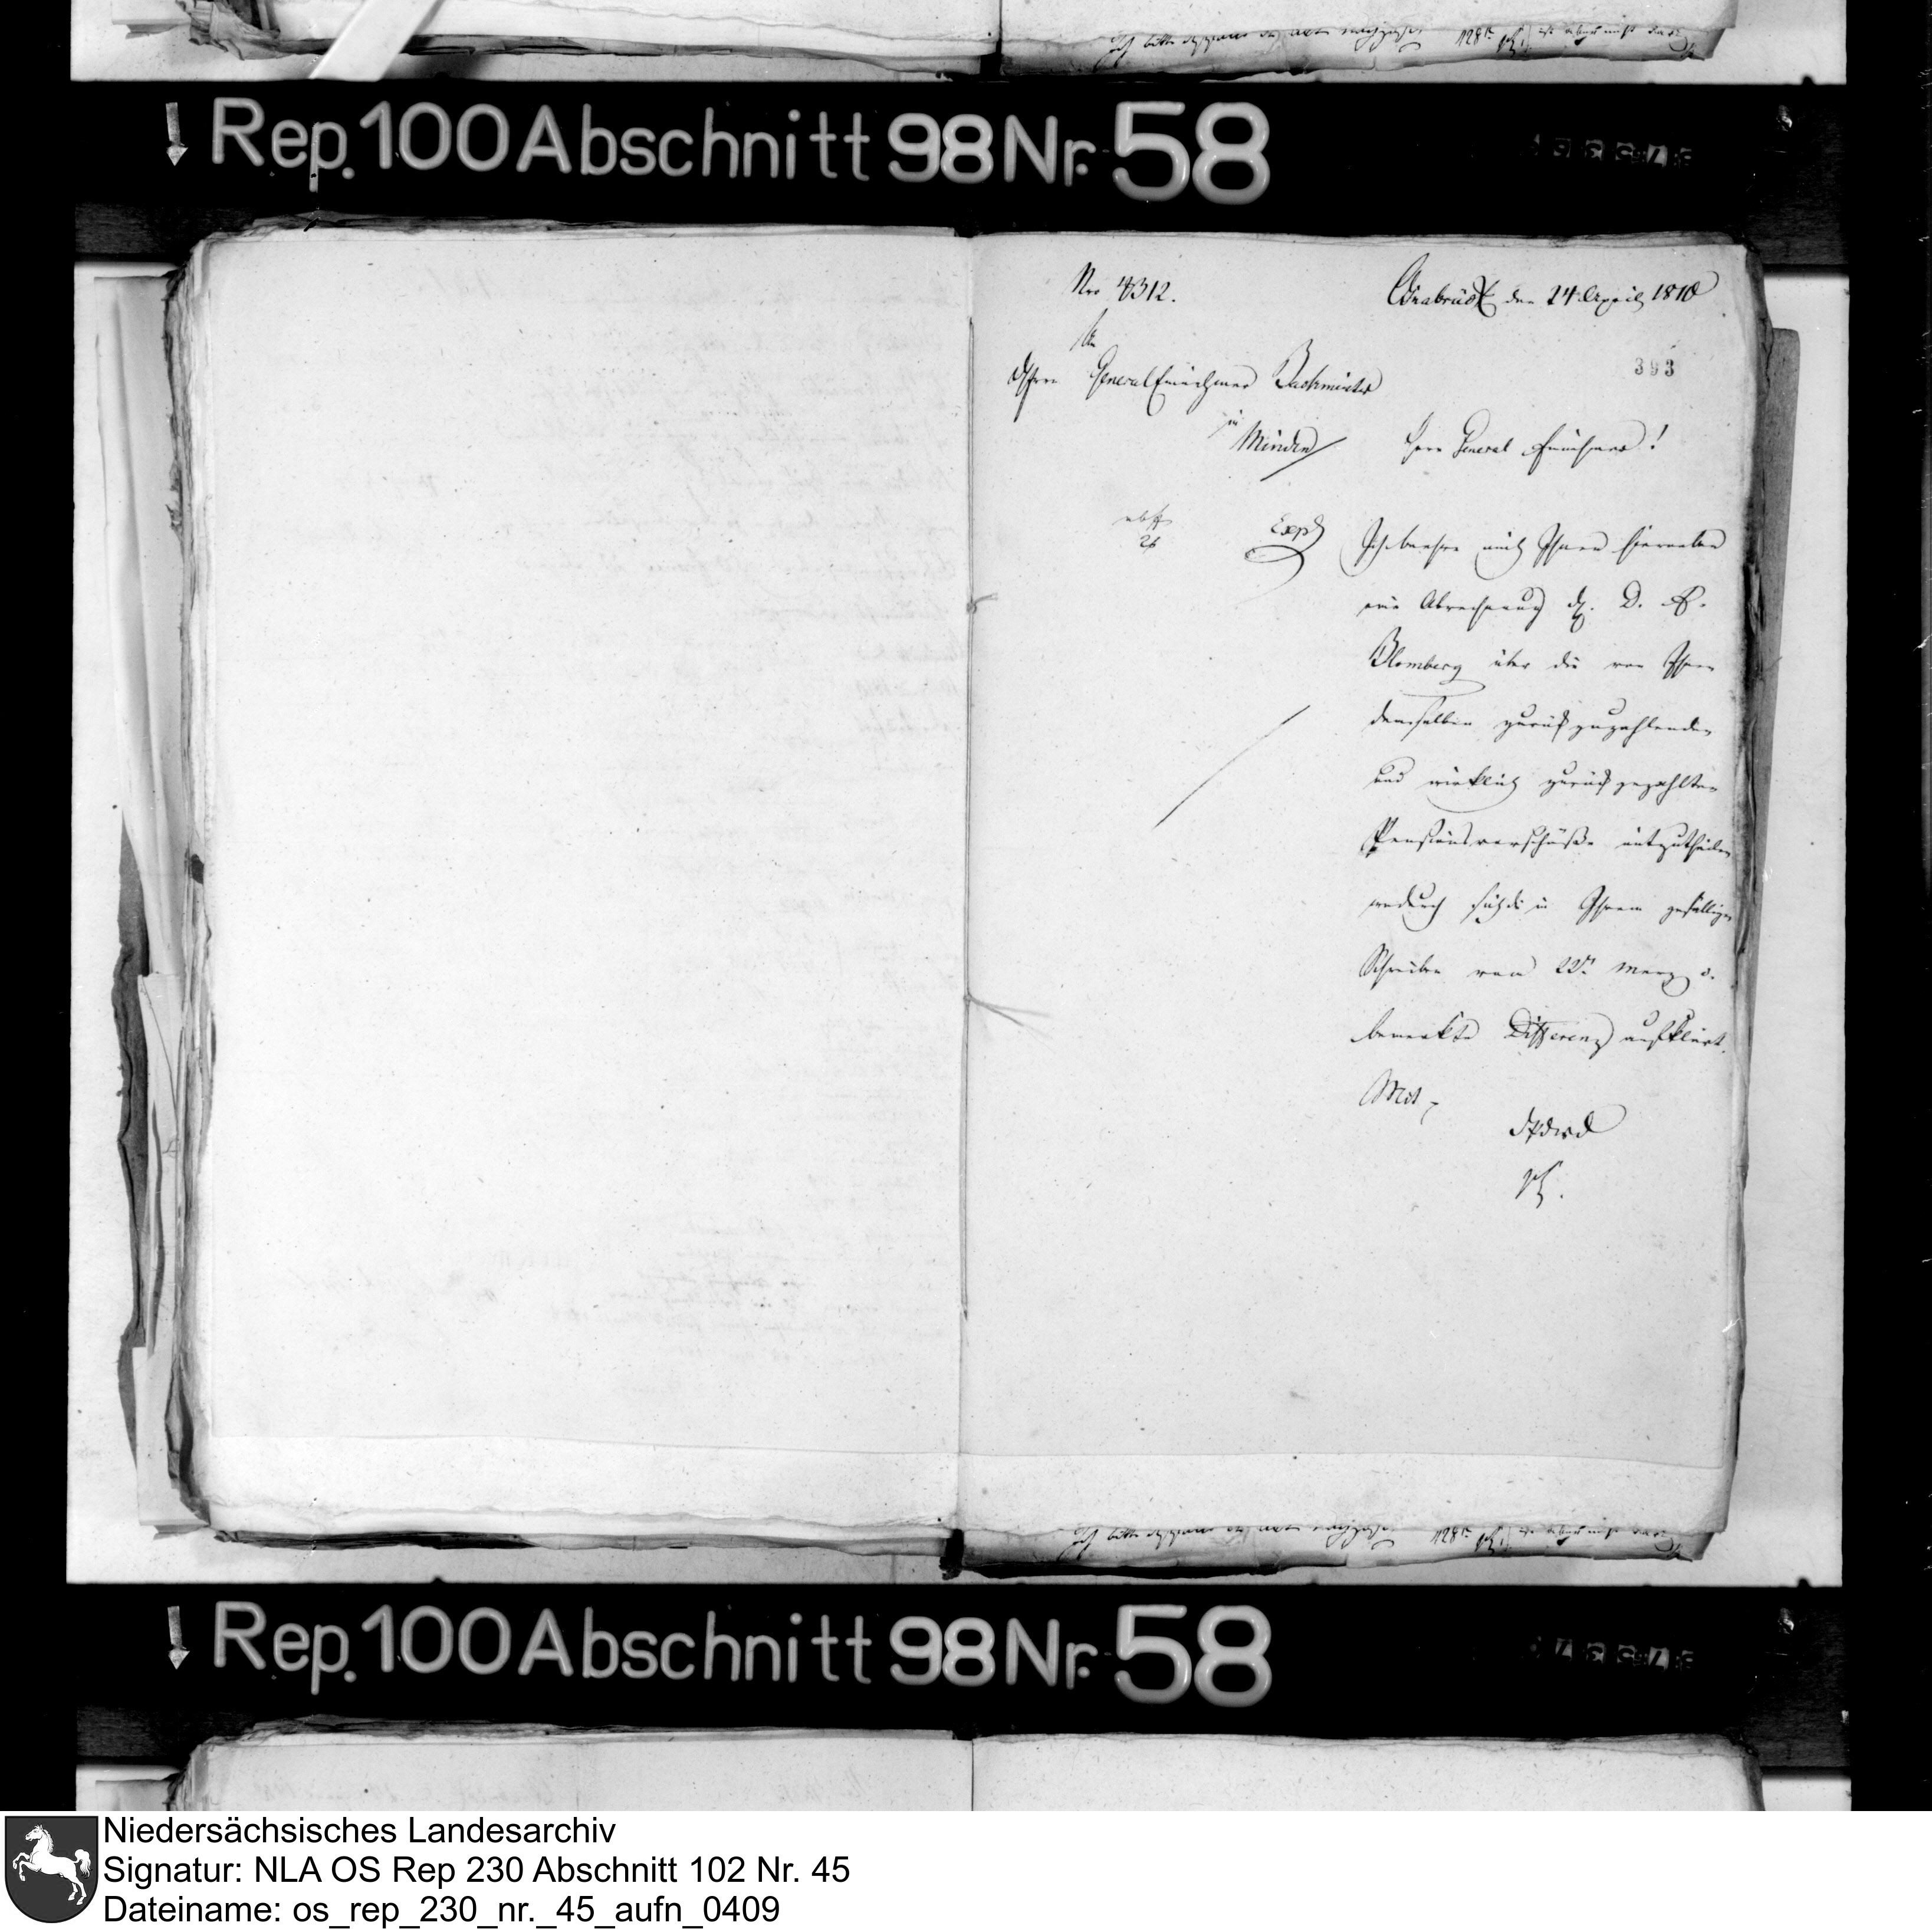 Rep. 100 Abschnitt 98 Nr. 58
Nro 4312.
Osnabrück den 24 April 1810
An
393
Herrn General Einnehmer Backmeister
in
Minden
Herr General Einnehmer!
Exp
26
Ich beehre mich Ihnen hierneben
eine Abrechnung D.
Blomberg über die von Ihnen
demselben zurückzuzahlenden
und wirklich zurückgezahlten
Pensionsvorschüße mitzutheilen
wodurch sich die in Ihrem gefälligen
Schreiben vom 22n Merz c.
bemerkte Differenz aufklärt.
Mit
Ich bitte
Rep. 100 Abschnitt 98 Nr. 58
Niedersächsisches Landesarchiv
Signatur: NLA OS Rep 230 Abschnitt 102 Nr. 45
Dateiname: os_rep_230_nr._45_aufn_0409